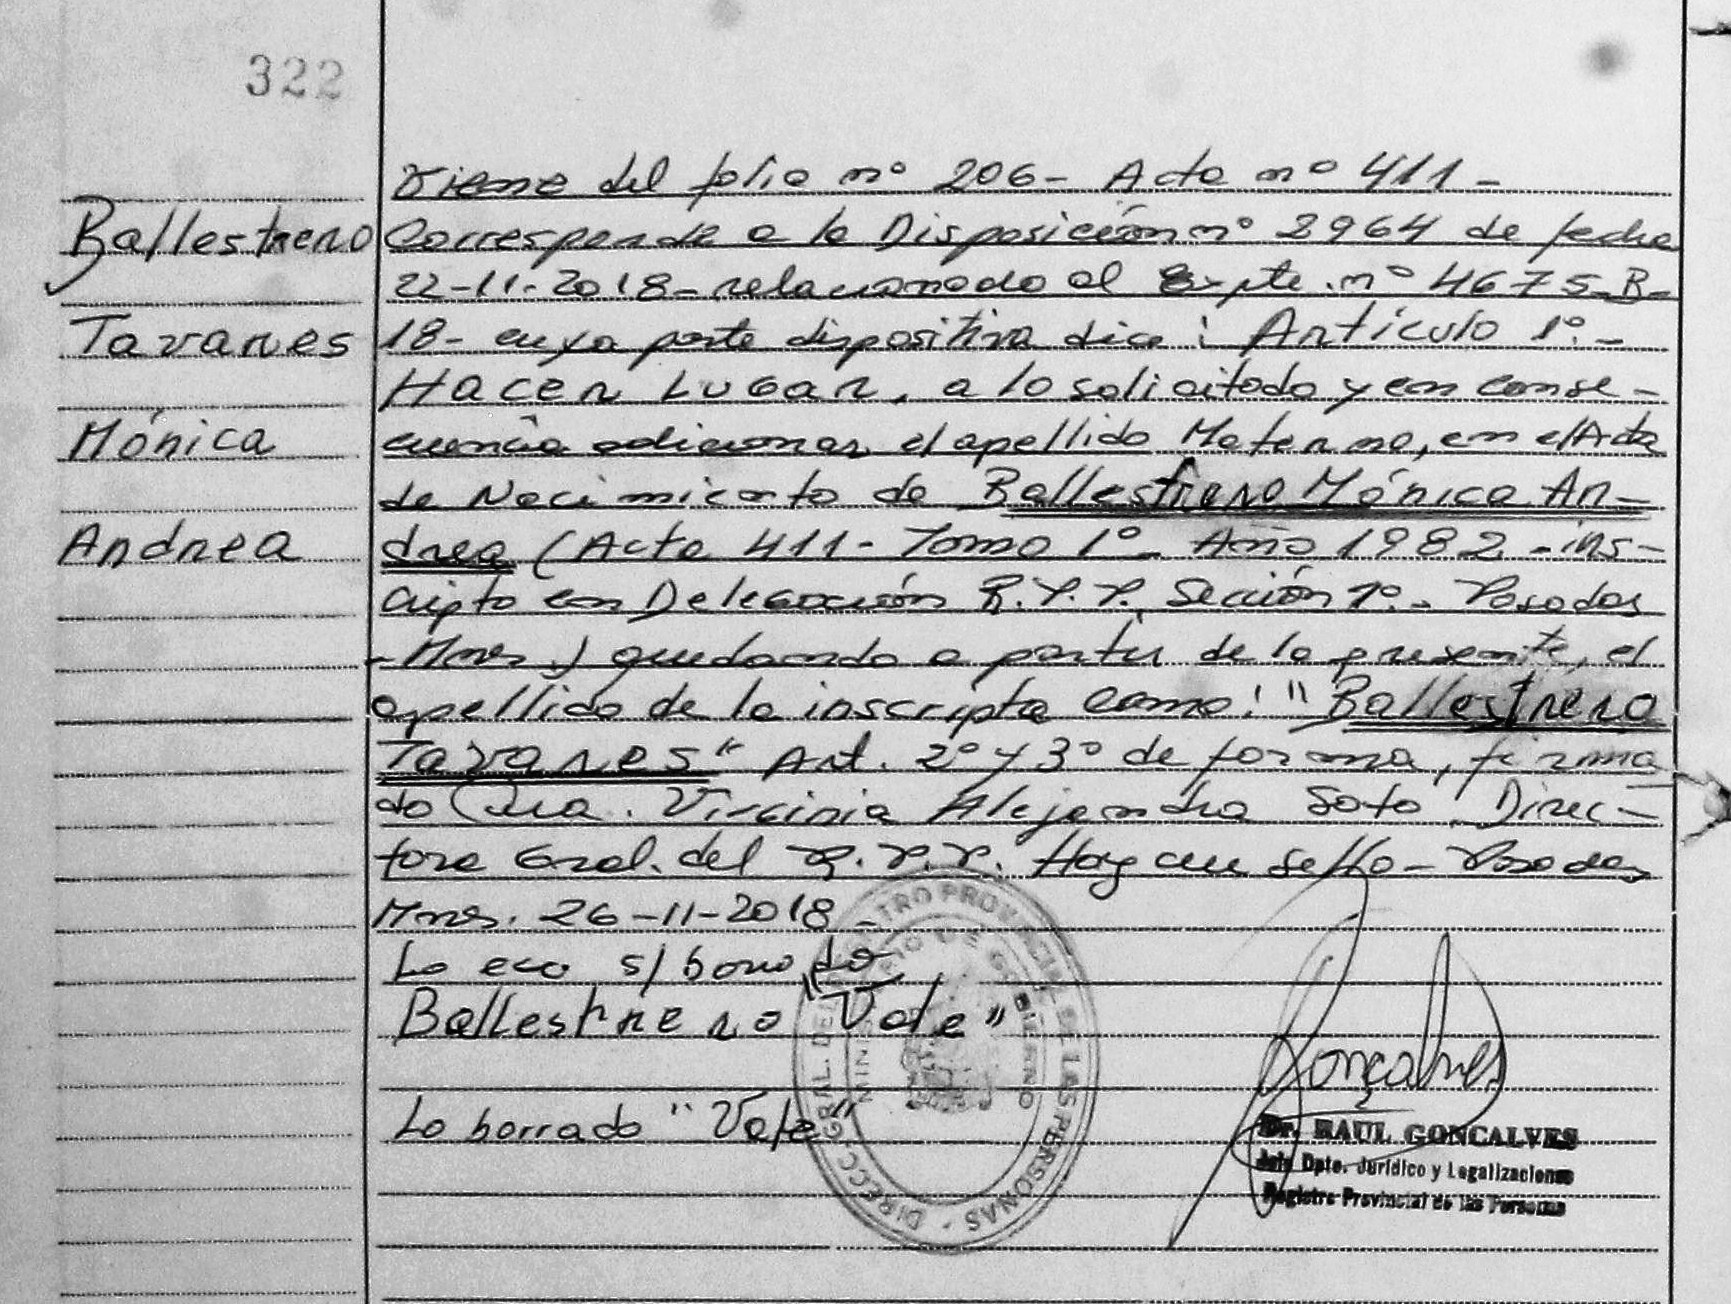 322
Viene del folio nº 206- Acta nº 411-
Ballestrero
Tavares
Mónica
Andrea
Corresponde a la Disposición nº 2964 de fecha
22-11-2018- relacionado al Expte. nº 4675-B-
18- cuya parte dispositiva dice: Artículo 1º.-
Hacer Lugar, a lo solicitado y en conse-
cuencia adicionar el apellido Materno, en el Acta
de Nacimiento de Ballestrero Mónica An-
drea (Acta 411- Tomo 1º- Año 1982 - ins-
cripto en Delegación R.P.P. Sección 1º.- Posadas
-Mnes.) quedando a partir de la presente, el
apellido de la inscripta como: "Ballestrero
Tavares" Art. 2º y 3º de forma, firma
do Dra. Virginia Alejandra Soto Direc-
tora Gral. del R.P.P. Hay un sello- Posadas,
Mnes. 26-11-2018-
Lo eco s/borrado
Ballestrero "Vale"
Lo borrado "Vale"
DIRECC. GRAL. DEL REGISTRO PROVINCIAL DE LAS PERSONAS
MINISTERIO DE GOBIERNO
Gonçalves
Dr. RAUL GONCALVES
Jefe Dpto. Jurídico y Legalizaciones
Registro Provincial de las Personas